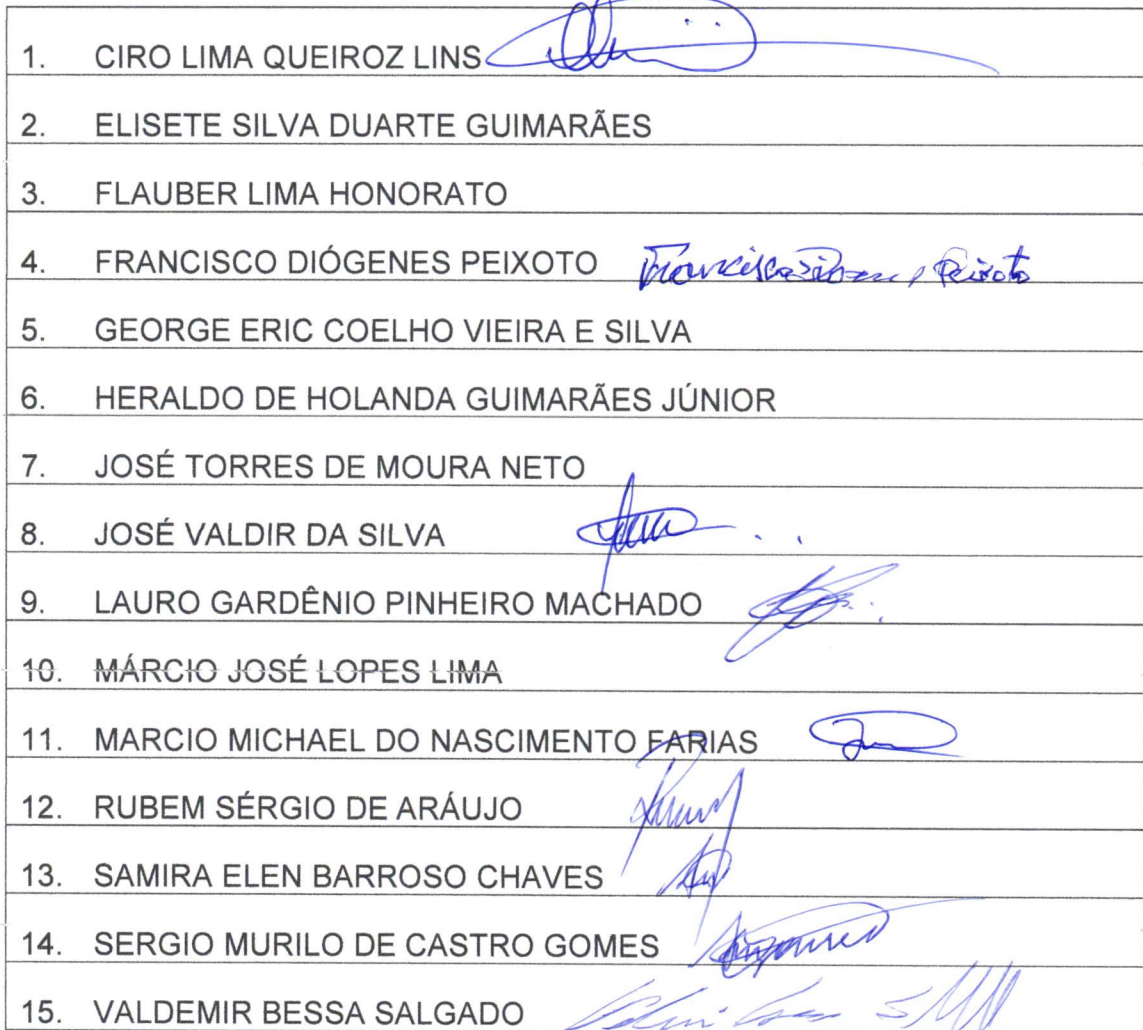 1. CIRO LIMA QUEIROZ LINS
2. ELISETE SILVA DUARTE GUIMARÃES
3. FLAUBER LIMA HONORATO
4. FRANCISCO DIÓGENES PEIXOTO Francisco Peixoto
5. GEORGE ERIC COELHO VIEIRA E SILVA
6. HERALDO DE HOLANDA GUIMARÃES JÚNIOR
7. JOSÉ TORRES DE MOURA NETO
8. JOSÉ VALDIR DA SILVA
9. LAURO GARDÊNIO PINHEIRO MACHADO
10. MÁRCIO JOSÉ LOPES LIMA
11. MARCIO MICHAEL DO NASCIMENTO FARIAS
12. RUBEM SÉRGIO DE ARÁUJO
13. SAMIRA ELEN BARROSO CHAVES
14. SERGIO MURILO DE CASTRO GOMES
15. VALDEMIR BESSA SALGADO